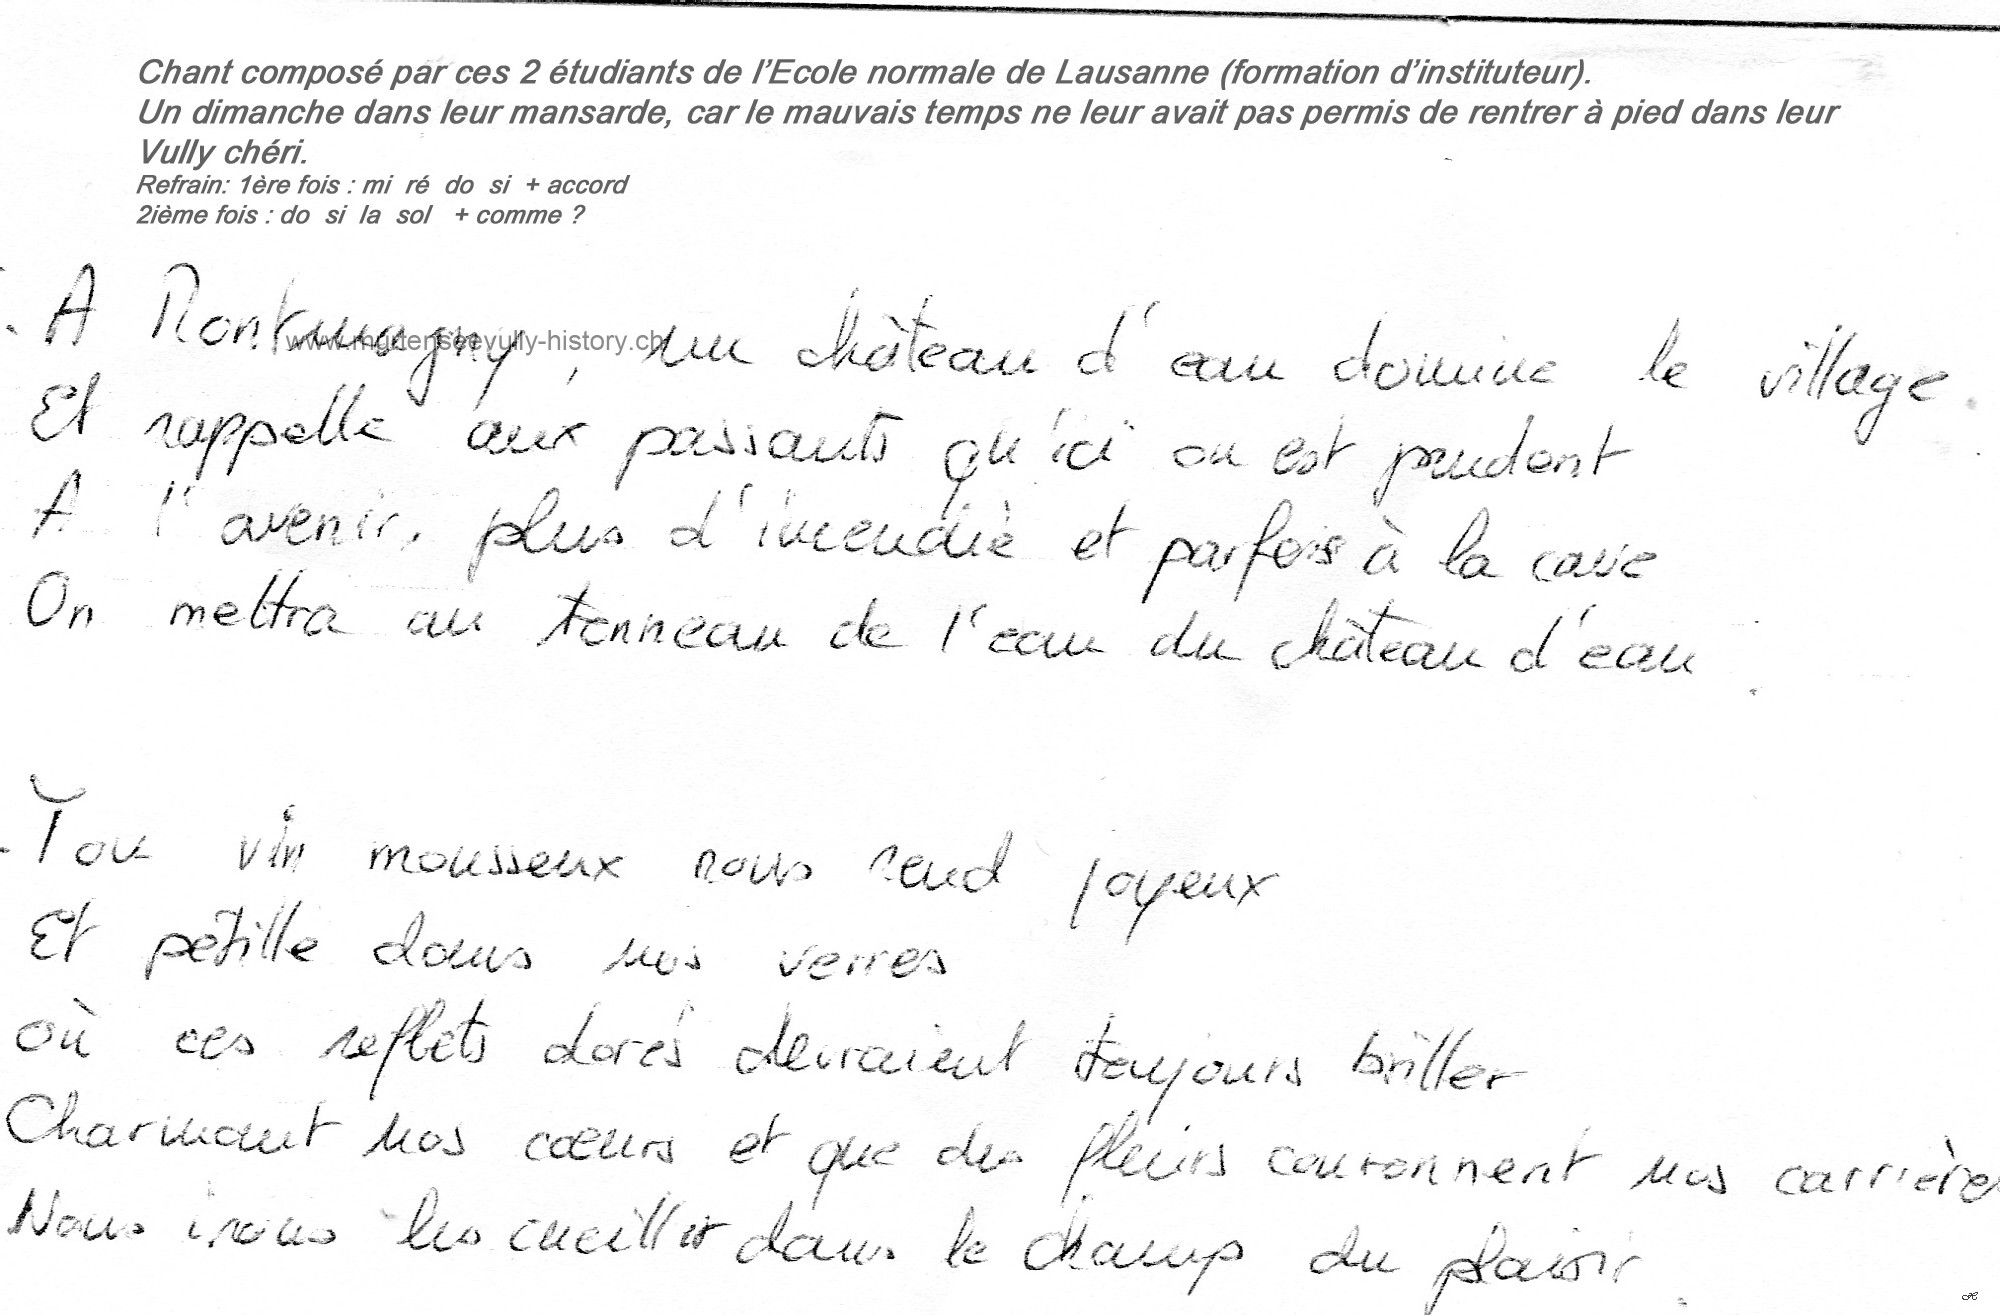 Chant composé par ces 2 étudiants de l'Ecole normale de Lausanne (formation d'instituteur).
Un dimanche dans leur mansarde, car le mauvais temps ne leur avait pas permis de rentrer à pied dans leur
Vully chéri.
Refrain: 1ère fois : mi ré do si + accord
2ième fois : do si la sol + comme ?
A Montmagny, un château d'eau domine le village.
www.murtenseevully-history.ch
Et rappelle aux passants qu'ici on est prudent
A l'avenir, plus d'incendie et parfois à la cave
On mettra au tonneau de l'eau du château d'eau.
Ton vin mousseux nous rend joyeux
Et pétille dans nos verres
où ces reflets dorés devraient toujours briller
Charmant nos cœurs et que des fleurs couronnent nos carrières
Nous irons les cueillir dans le champ du plaisir.